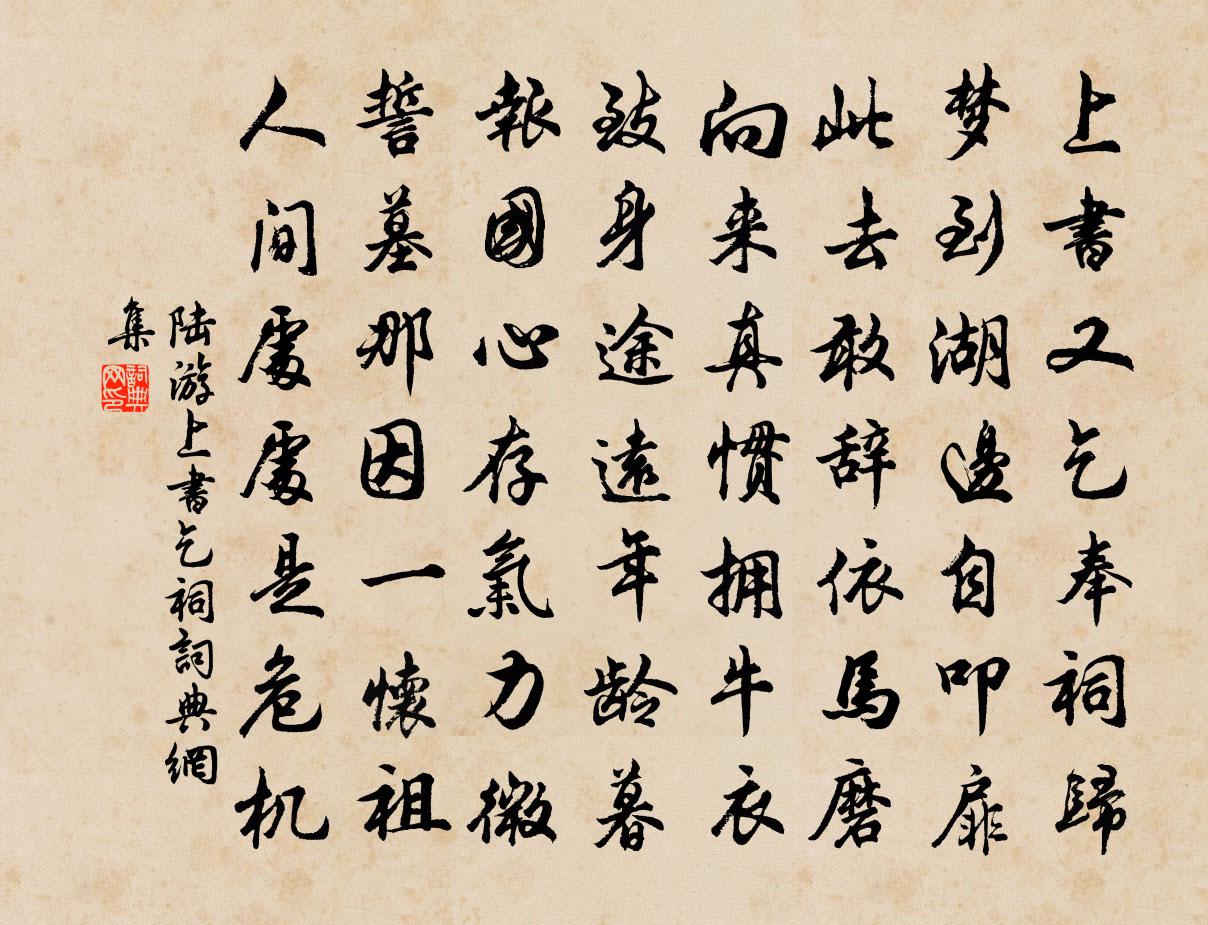 上書又乞奉祠歸
梦到湖邊自叩扉
此去敢辞依馬磨
向来真惯拥牛衣
致身途遠年龄暮
報國心存氣力微
誓墓那因一懷祖
人间處處是危机
陆游上書乞祠詞典網
集
詞典网印